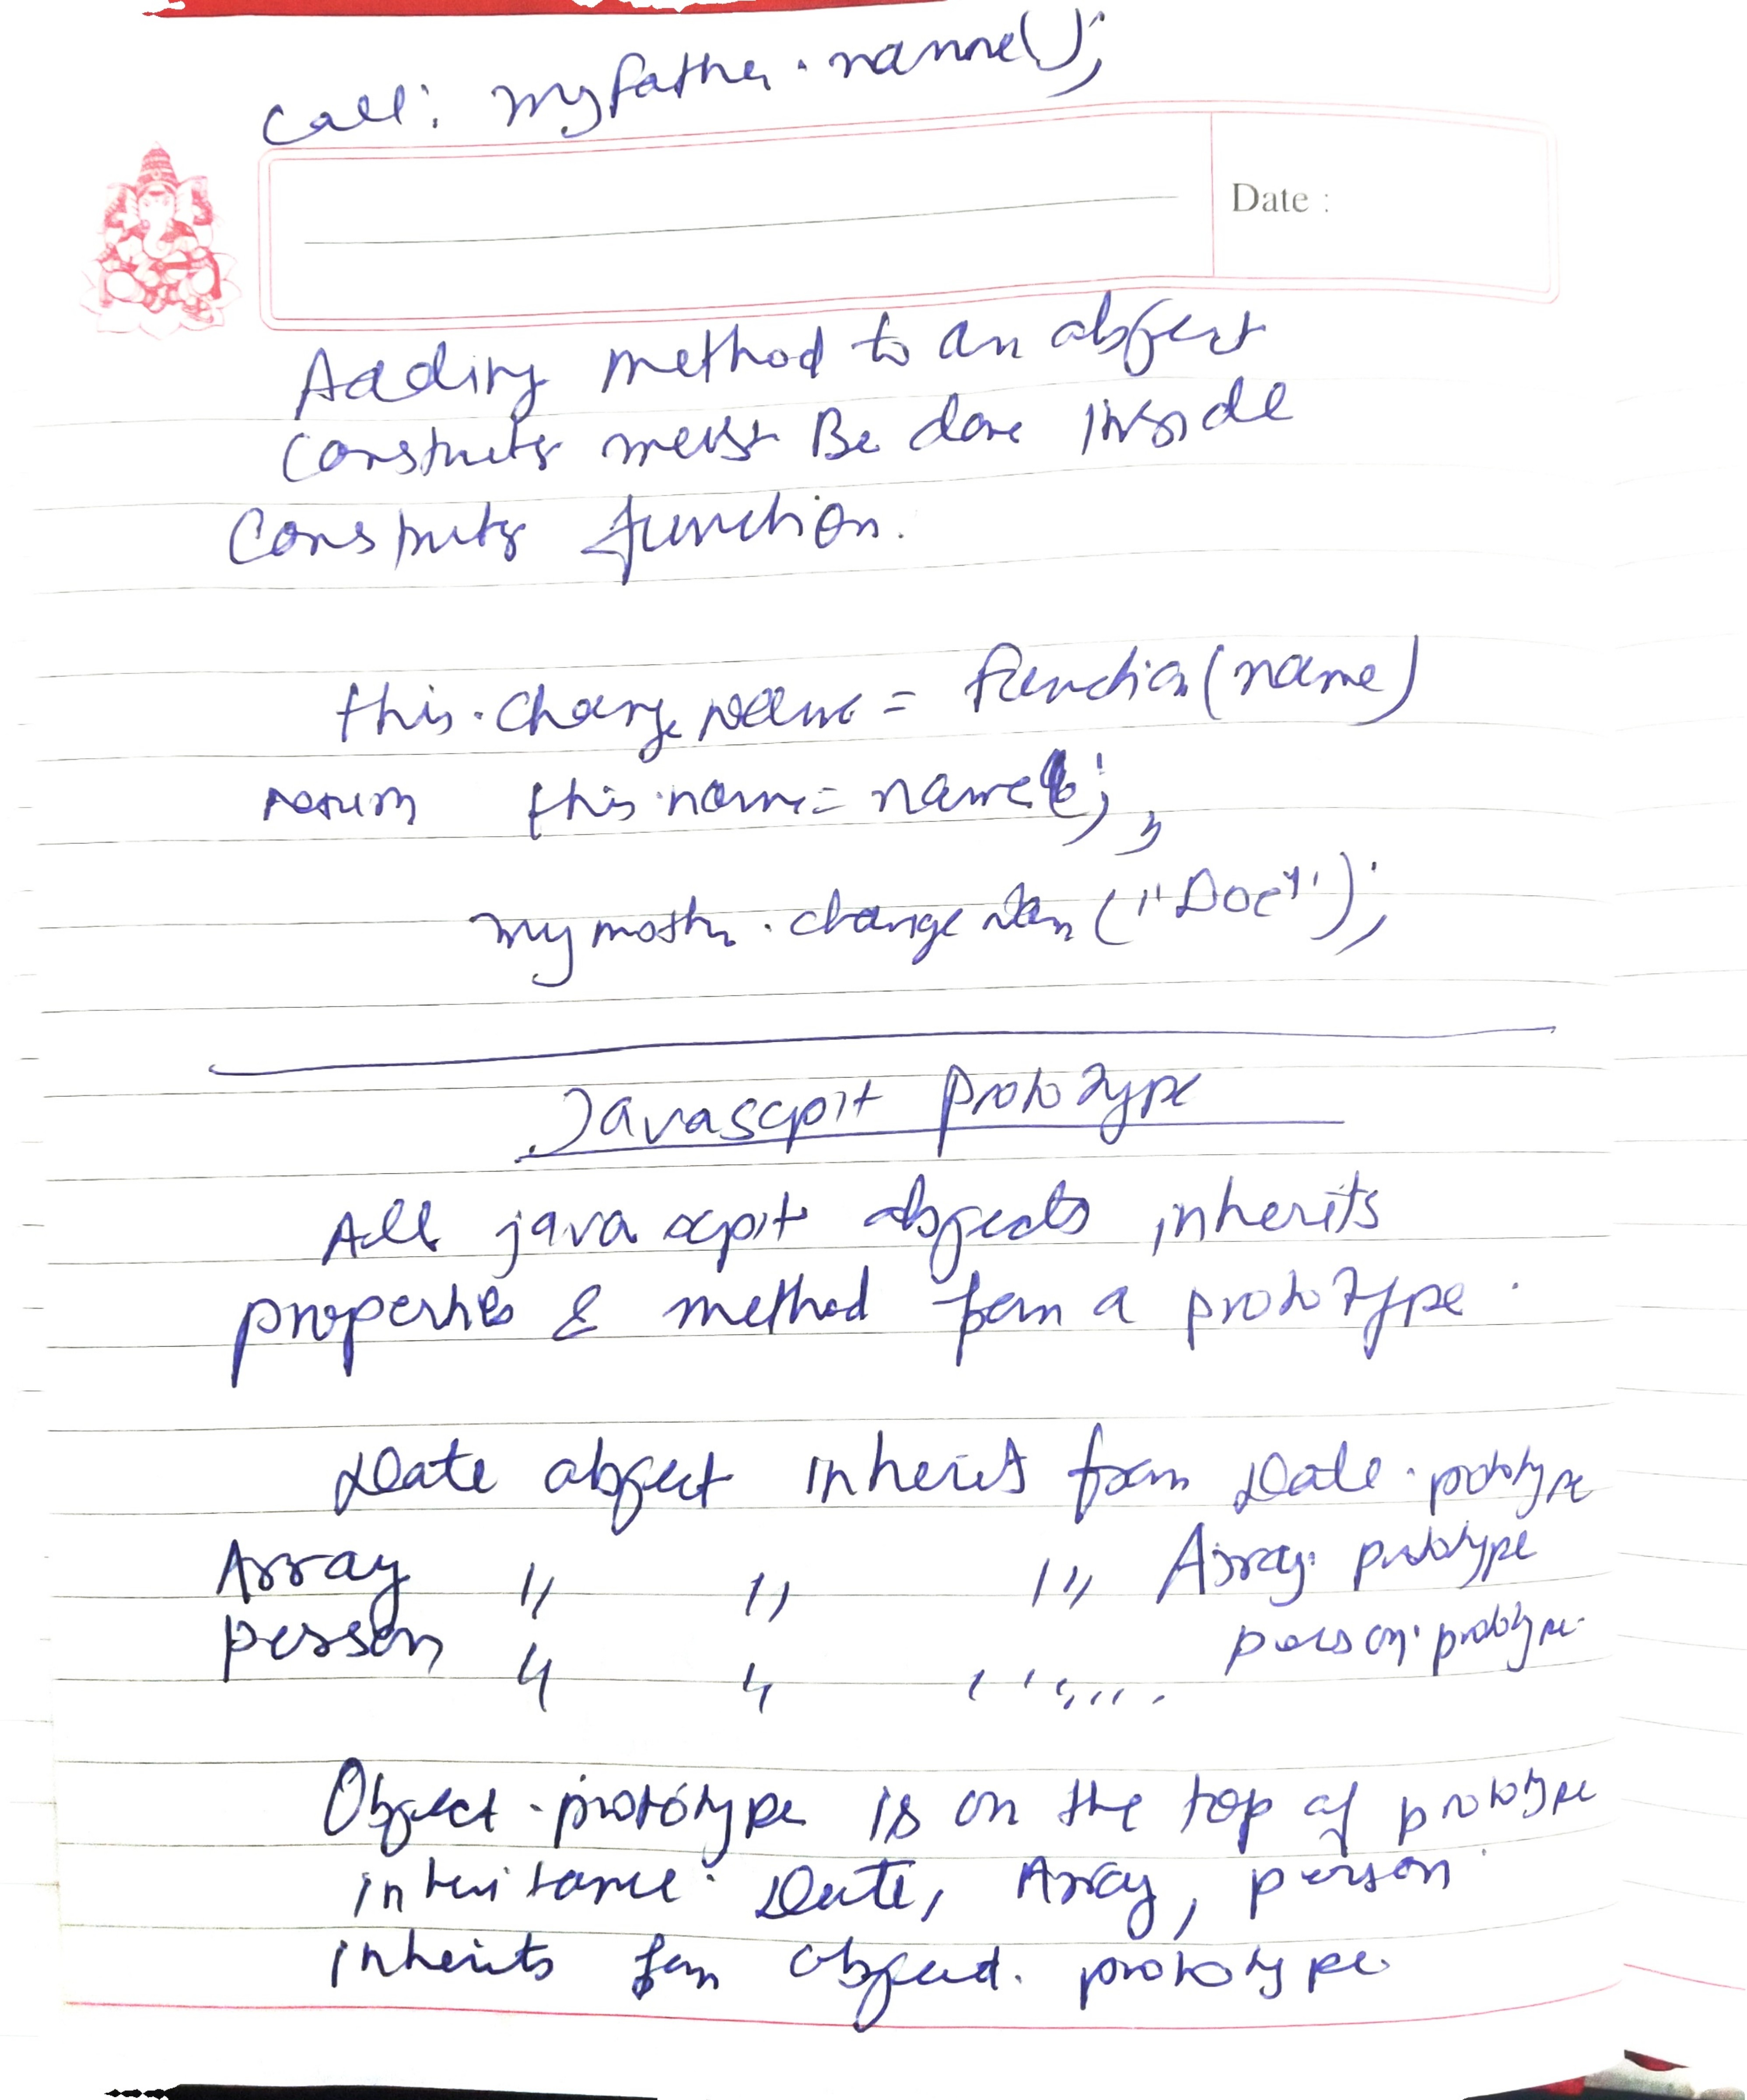 call: myfather.name();
Date :
Adding method to an object
constructor must Be done inside
Constructor function.
this.changeName = function(name)
return this.name = name;
mymother.changeNam ("Doe");
Javascpit prototype
All javascpit objects inherits
properties & method form a prototype.
Date object inherits from Date.prototype
Array " " " Array.prototype
person " " " person.prototype
Object.prototype is on the top of prototype
inheritance. Date, Array, person
inherits from object.prototype